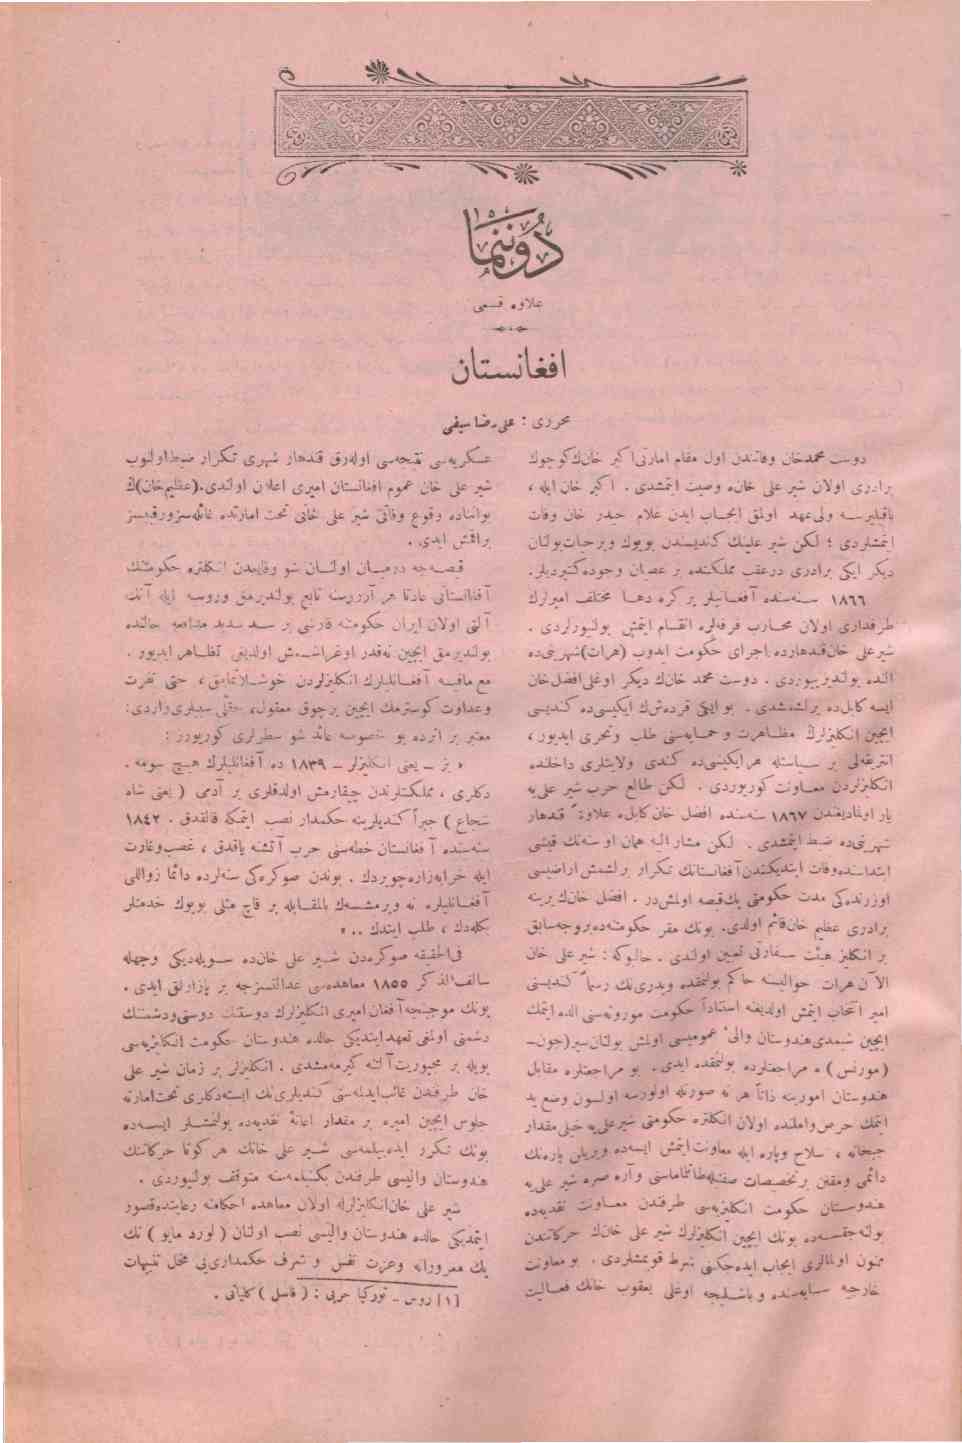 دوننما
علاوه قسمی
افغانستان
محرری : علی رضا سیفی
دوست محمدخان وفاتندن اول مقام امارتی اکبر خانك کوچوك
برادری اولان شیر علی خانه وصیت ایتمشدی . اکبر خان ایله ،
ولی عهد اولمق ایجاب ایدن غلام حیدر خان وفات
ایتمشلردی ؛ لکن شیر علینك کندیسندن بویوك وبرحیات بولنان
دیکر ایکی برادری درعقب مملکتده بر عصیان وجوده کتیردیلر.
۱۸۶۶ سنه‌سنده آفغانیلر بر کره دها مختلف امیرلرك
طرفداری اولان محارب فرقه‌لره انقسام ایتمش بولنیورلردی .
شیر علی خان قندهارده اجرای حکومت ایدوب (هرات) شهرینی‌ده
النده بولندیریوردی . دوست محمد خانك دیکر اوغلی افضل خان
ایسه کابل‌ده یرلشمشدی . بو ایکی قرده‌شك ایکیسی‌ده کندیسی
ایچین انکلیزلرك مظاهرت و حمایه‌سنی طلب وتحری ایدیور ،
انتریقه‌لی بر سیاستله هر ایکیسی‌ده کندی ولایتلری داخلنده
انکلیزلردن معاونت کوریوردی . لکن طالع حرب شیر علی‌یه
یار اولمادیغندن ۱۸۶۷ سنه‌سنده افضل خان کابله علاوةً قندهار
شهرینی‌ده ضبط ایتمشدی . لکن مشارالیه همان او سنه‌نك قیشی
ابتداسنده وفات ایتدیکندن آفغانستانك تکرار برلشمش اراضیسی
اوزرنده‌کی مدت حکومتی پك قیصه اولمش‌در . افضل خانك یرینه
برادری عظیم خان قائم اولدی. بونك مقر حکومتنده بروجه سابق
بر انکلیز هیئت سفارتی تعیین اولندی . حالبوکه : شیر علی خان
الآن هرات حوالیسنه حاکم بولنمقده وپدری‌نك رسماً کندیسنی
امیر انتخاب ایتمش اولدیغنه استناداً حکومت موروثه‌سنی الده ایتمك
ایچین شیمدی هندوستان والیٔ عمومیسی اولمش بولنان سیر (جون-
(مورنس) ه مراجعتلرده بولنمقده ایدی. بو مراجعتلره مقابل
هندوستان امورینه ذاتاً هر نه صورتله اولورسه اولسون وضع ید
ایتمك حرص واملنده اولان انکلتره حکومتی شیر علی‌یه خیلی مقدار
جبخانه ، سلاح وپاره ایله معاونت ایتمش ایسه‌ده ویریلن پاره‌نك
دائمی ومقنن بر تخصیصات صفتیله طانتماسنی وآره صره شیر علی‌یه
هندوستان حکومت انکلیزیه‌سی طرفندن معاونت نقدیه‌ده
بولنه‌جقسه‌ده بونك ایچین انکلیزلرك شیر علی خانك حرکاتندن
ممنون اولمالری ایجاب ایده‌جکنی شرط قویمشلردی . بو معاونت
خارجیه سایه‌سنده و باشلیجه اوغلی یعقوب خانك فعالیت
عسکریه‌سی نتیجه‌سی اوله‌رق قندهار شهری تکرار ضبط اولنوب
شیر علی خان عموم افغانستان امیری اعلان اولندی. (عظیم خان)ك
بواثناده وقوع وفاتی شیر علی خانی تحت امارتده غائله‌سز ورقیبسز
براقمش ایدی .
قیصه‌جه درمیان اولنان شو وقایعدن انکلتره حکومتنك
آفغانستانی عادتا هر آرزوسنه تابع بولندیرمق وروسیه ایله آنك
آلتی اولان ایران حکومتنه قارشی بر سد سدید مدافعه حالنده
بولندیرمق ایچین نه‌قدر اوغراشمش اولدیغی تظاهر ایدیور .
مع مافیه آفغانلیلرك انکلیزلردن خوشلانمامق ، حتی نفرت
وعداوت کوسترمك ایچین برچوق معقول، حقلی سببلری واردی:
معتبر بر اثرده بو خصوصه عائد شو سطرلری کوریورز :
« بز ــ یعنی انکلیزلر ــ ۱۸۳۹ ده آفغانلیلرك هیچ سومه‌-
دکلری ، مملکتلرندن چیقارمش اولدقلری بر آدمی ( یعنی شاه
شجاع ) جبراً کندیلرینه حکمدار نصب ایتمکه قالقدق . ۱۸۴۲
سنه‌سنده آفغانستان خطه‌سنی حرب آتشنه یاقدق ، غصب وغارت
ایله خرابه‌زاره چویردك . بوندن صوکره‌کی سنه‌لرده دائما زواللی
آفغانلیلره نه ویرمشسه‌ك بالمقابله بر قاچ مثلی بویوك خدمتلر
بکله‌دك ، طلب ایتدك .. »
فی‌الحقیقه صوکره‌دن شیر علی خان‌ده سویله‌دیکی وجهله
سالف الذکر ۱۸۵۵ معاهده‌سی عدالتسزجه بر پازارلق ایدی .
بونك موجبنجه آفغان امیری انکلیزلرك دوستنك دوستی ودشمننك
دشمنی اولمغی تعهد ایتدیکی حالده هندوستان حکومت انکلیزیه‌سی
بویله بر مجبوریت آلتنه کیرمه‌مشدی . انکلیزلر بر زمان شیر علی
خان طرفندن غائب ایدلمه‌سنی کندیلری‌نك ایسته‌دکلری تحت امارته
جلوس ایچین امیره بر مقدار اعانهٔ نقدیه‌ده بولنمشلر ایسه‌ده
بونك تکرر ایده‌بیلمه‌سی شیر علی خانك هر کونا حرکاتنك
هندوستان والیسی طرفندن بکنیلمه‌سنه متوقف بولنیوردی .
شیر علی خان انکلیزلرله اولان معاهده احکامنه رعایتده قصور
ایتمدیکی حالده هندوستان والیسی نصب اولنان ( لورد مایو ) نك
پك مغرورانه وعزت نفس و شرف حکمداری‌یی مخل تنبیهات
[۱] روس ــ تورکیا حربی : ( قاسل ) کلیاتی .